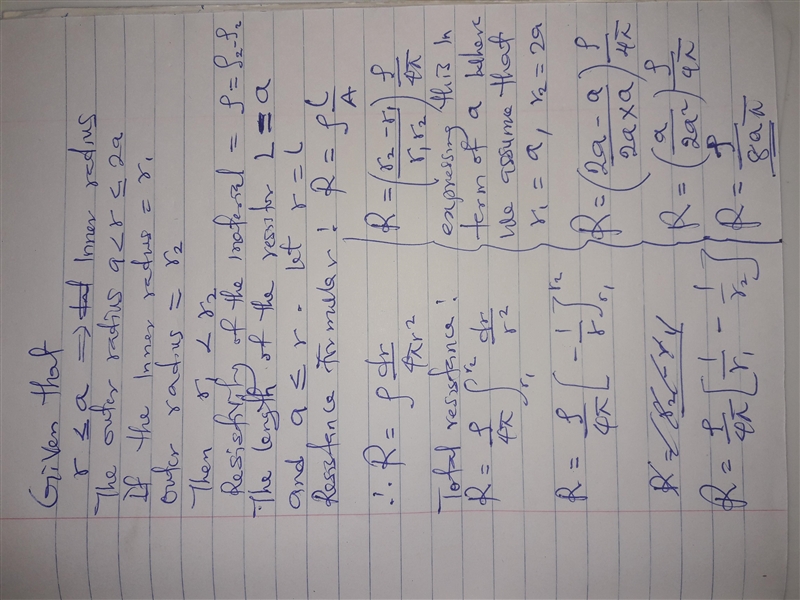 Given that
r ≤ a ⇒ Inner radius
The outer radius a < r ≤ 2a
If the Inner radius = r₁
outer radius = r₂
Then r₁ < r₂
Resistivity of the material = ρ = ρ₂ - ρ₂
The length of the resistor L = a
and a ≤ r. Let r = L
Resistance formular: R = ρ L/A
∴ R = ρ dr/4πr²
Total resistance:
R = ρ/4π ∫_{r₁}^{r₂} dr/r²
R = ρ/4π [-1/r]_{r₁}^{r₂}
R = ρ/4π [1/r₁ - 1/r₂]
R = (r₂ - r₁/r₁r₂) ρ/4π
expressing this in
term of a where
We assume that
r₁ = a, r₂ = 2a
R = (2a - a/2a×a) ρ/4π
R = (a/2a²) ρ/4π
R = ρ/8aπ